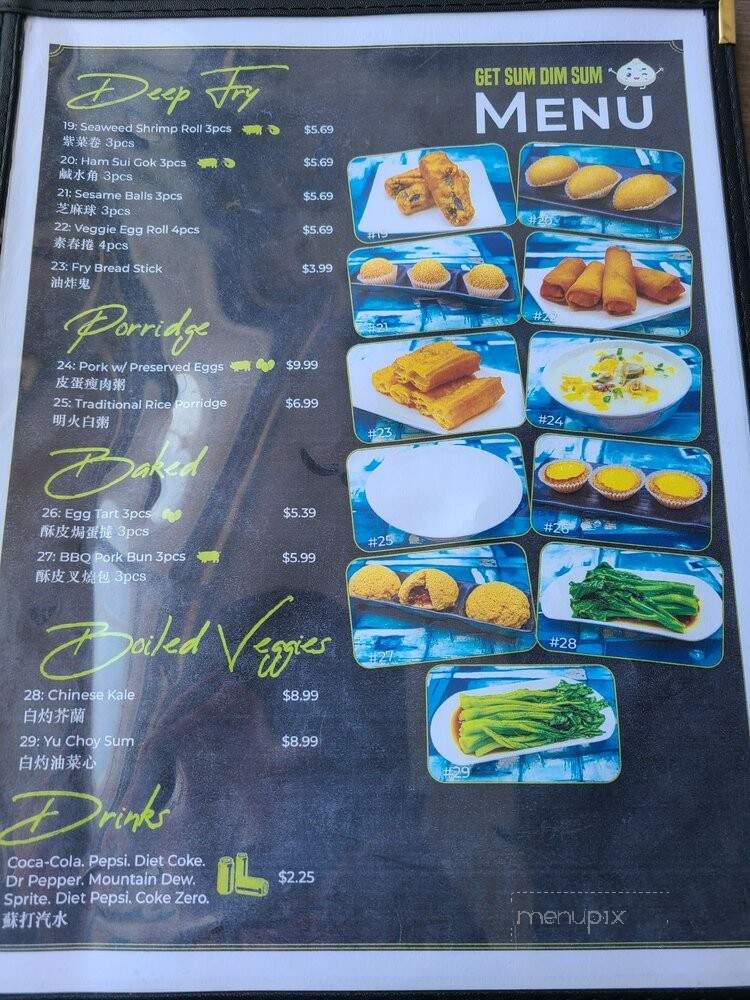 GET SUM DIM SUM
MENU
Deep Fry
19: Seaweed Shrimp Roll 3pcs $5.69
紫菜卷 3pcs
20: Ham Sui Gok 3pcs $5.69
鹹水角 3pcs
21: Sesame Balls 3pcs $5.69
芝麻球 3pcs
22: Veggie Egg Roll 4pcs $5.69
素春捲 4pcs
23: Fry Bread Stick $3.99
油炸鬼
Porridge
24: Pork w/ Preserved Eggs $9.99
皮蛋瘦肉粥
25: Traditional Rice Porridge $6.99
明火白粥
Baked
26: Egg Tart 3pcs $5.39
酥皮焗蛋撻 3pcs
27: BBQ Pork Bun 3pcs $5.99
酥皮叉燒包 3pcs
Boiled Veggies
28: Chinese Kale $8.99
白灼芥蘭
29: Yu Choy Sum $8.99
白灼油菜心
Drinks
Coca-Cola. Pepsi. Diet Coke.
Dr Pepper. Mountain Dew. $2.25
Sprite. Diet Pepsi. Coke Zero.
蘇打汽水
#19
#20
#21
#22
#23
#24
#25
#26
#27
#28
#29
menupix